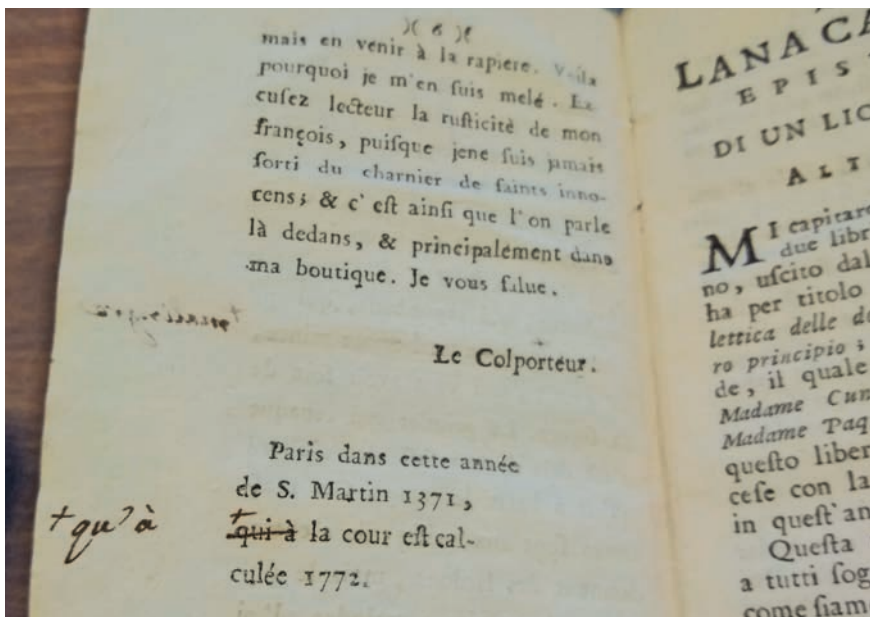 )( 6 )(
mais en venir à la rapiere. Voila
pourquoi je m'en ſuis melé. Ex
cuſez lecteur la ruſticitè de mon
françois, puiſque jene ſuis jamais
ſorti du charnier de ſaints inno-
cens; & c' eſt ainſi que l'on parle
là dedans, & principalement dans
ma boutique. Je vous ſalue.
Le Colporteur.
Paris dans cette année
de S. Martin 1371,
+ qu'à
+
qui à la cour eſt cal-
culée 1772.
LANA CA
EPIS
DI UN LIC
ALT
MI capitar
due libr
no, uſcito dal
ha per titolo
lettica delle d
ro principio;
de, il quale
Madame Cun
Madame Paq
queſto liber
ceſe con la
in queſt'an
Queſta
a tutti ſog
come ſiam